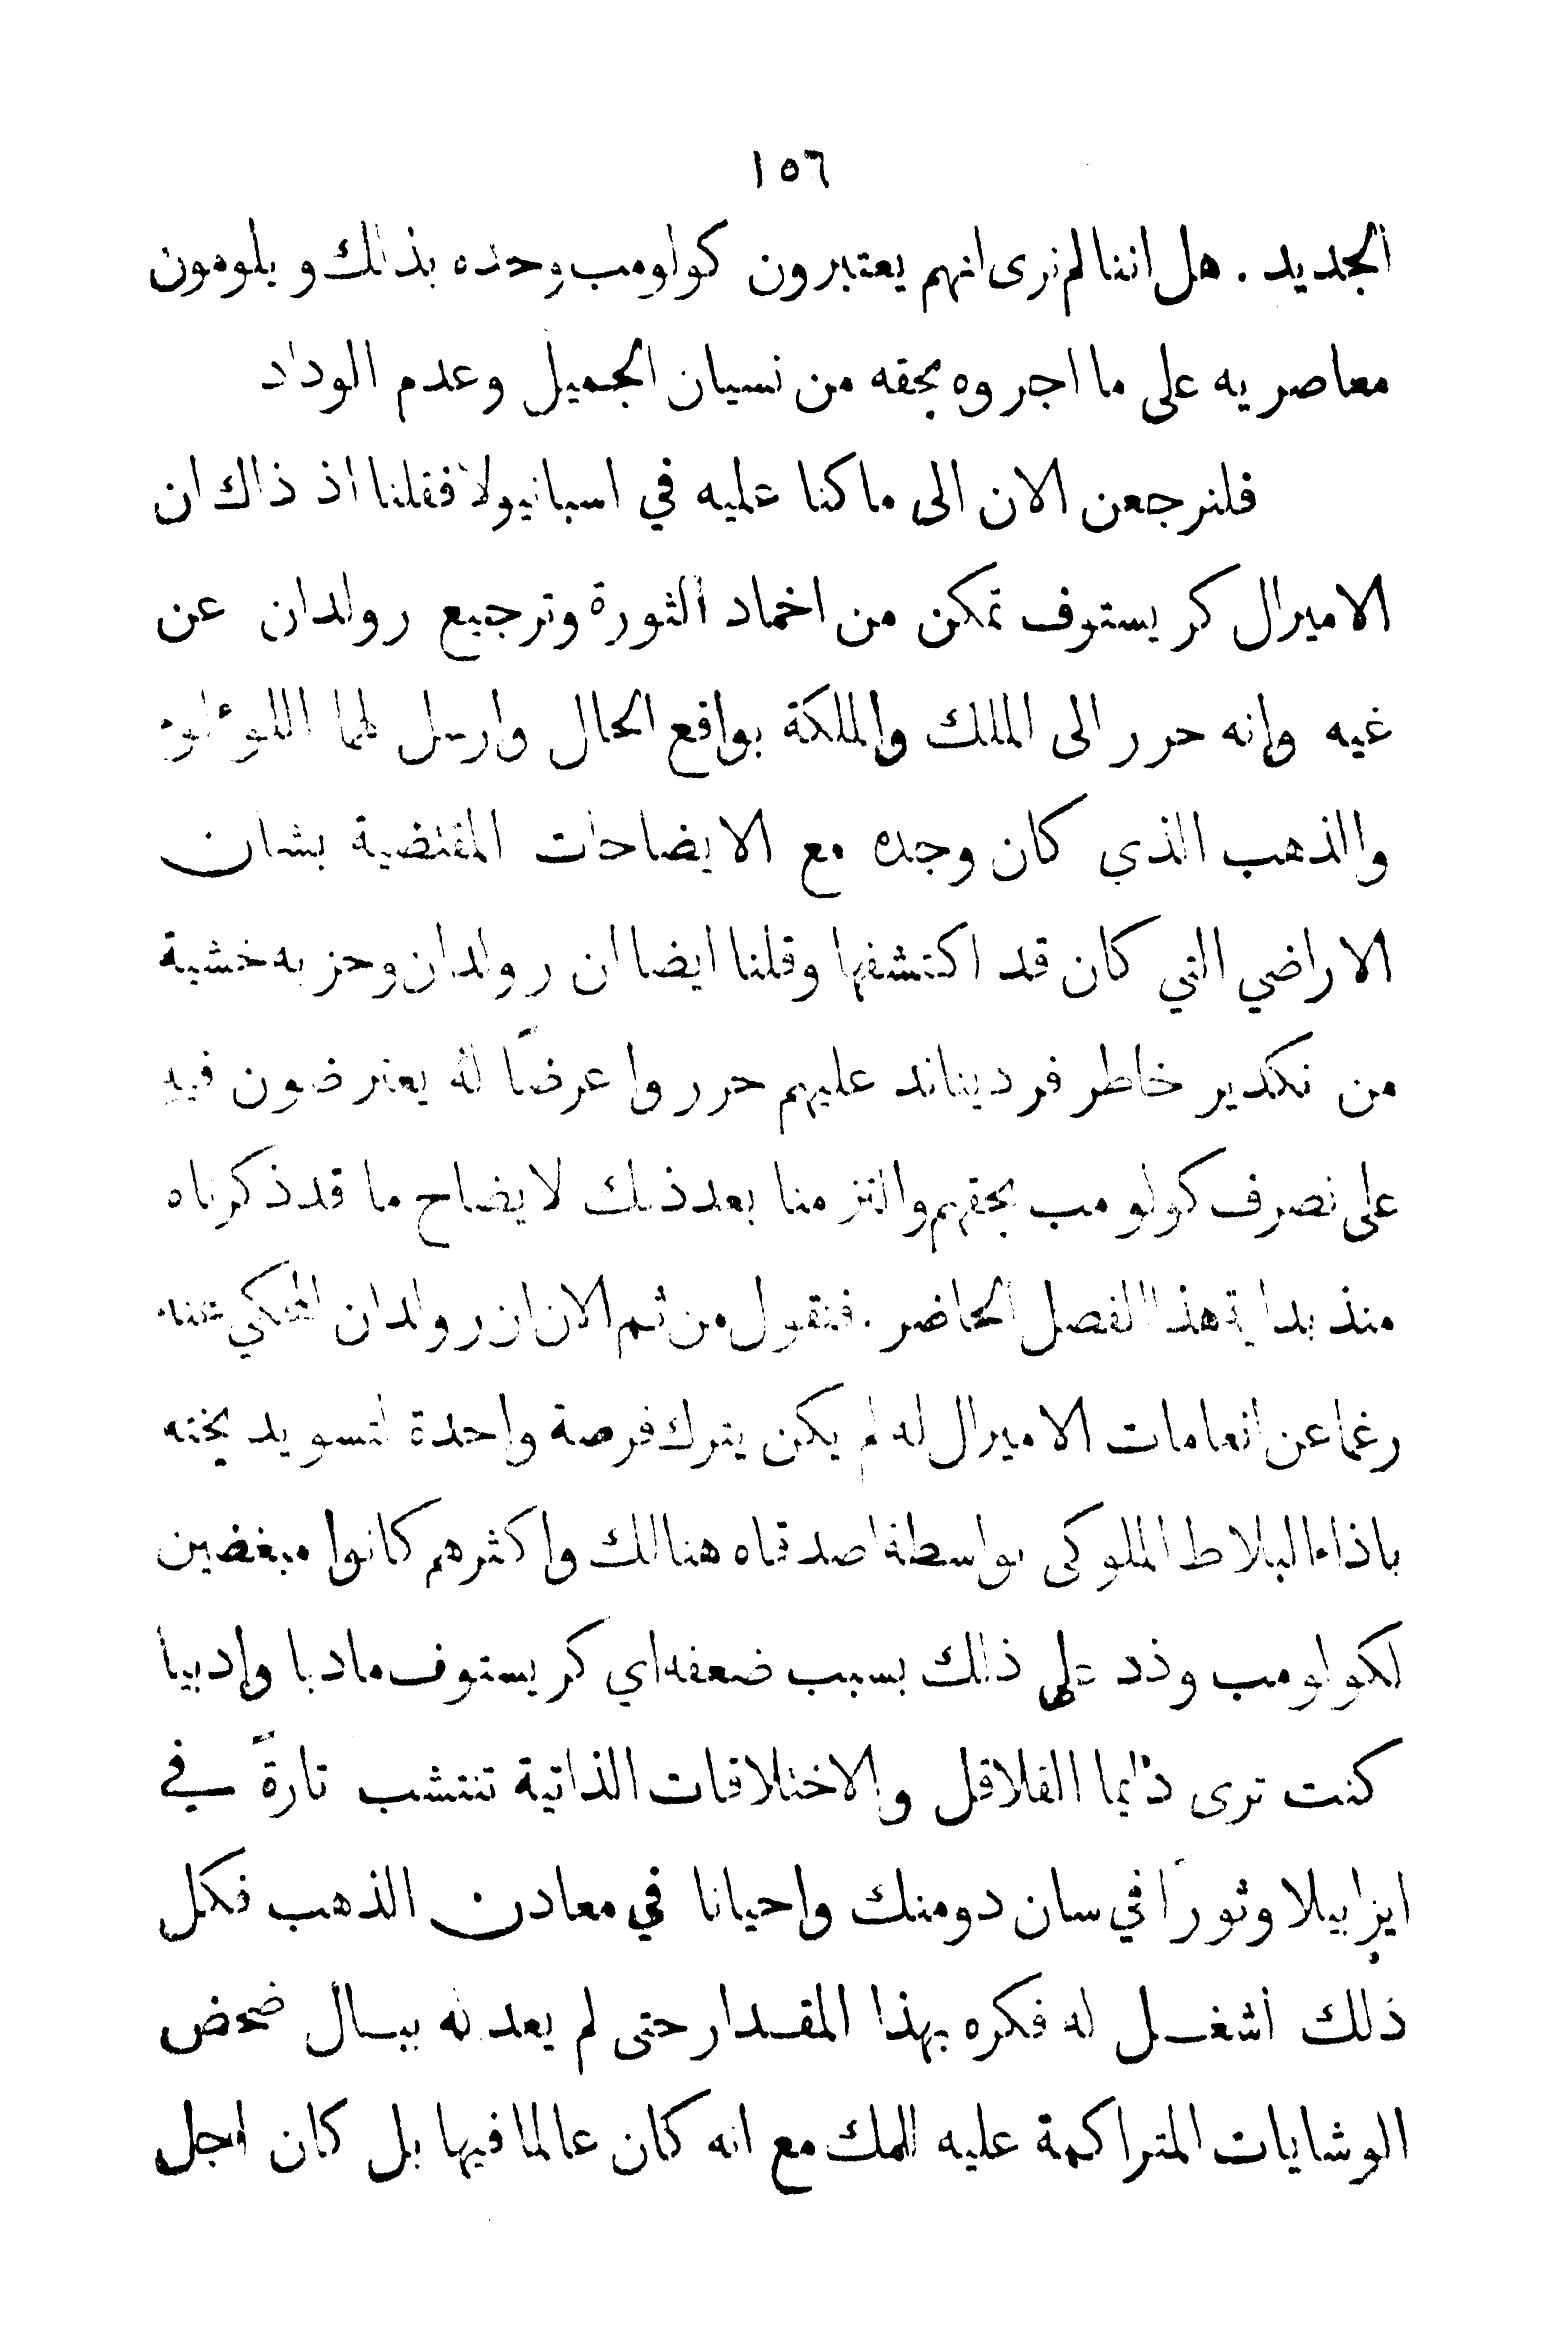 ١٥٦
الجديد . هل اننا لم نرى انهم يعتبرون كولومب وحده بذلك ويلومون
معاصريه على ما اجروه بحقه من نسيان الجميل وعدم الوداد
فلنرجعن الان الى ما كنا عليه في اسبانيولا فقلنا اذ ذاك ان
الاميرال كريستوف تمكن من اخماد الثورة وترجيع رولدان عن
غيه وانه حرر الى الملك والملكة بواقع الحال وارسل لهما اللوءلوء
والذهب الذي كان وجده مع الايضاحات المقتضية بشان
الاراضي التي كان قد اكتشفها وقلنا ايضا ان رولدان وحزبه خشية
من تكدير خاطر فرديناند عليهم حرروا عرضًا له يعترضون فيه
على تصرف كولومب بحقهم والتزمنا بعد ذلك لايضاح ما قد ذكرناه
منذ بداية هذا الفصل الحاضر . فنقول من ثم الان ان رولدان المحكي عنه
رغما عن انعامات الاميرال له لم يكن يترك فرصة واحدة لتسويد بخته
باذاء البلاط الملوكي بواسطة اصدقاه هنالك واكثرهم كانوا مبغضين
لكولومب وذد على ذلك بسبب ضعفه اي كريستوف ماديا وادبيا
كنت ترى دايما القلاقل والاختلاقات الذاتية تنتشب تارةً في
ايزابيلا وثورًا في سان دومنك واحيانا في معادن الذهب فكل
ذلك اشغل له فكره بهذا المقدار حتى لم يعد له ببال ضحض
الوشايات المتراكمة عليه المك مع انه كان عالما فيها بل كان اجل